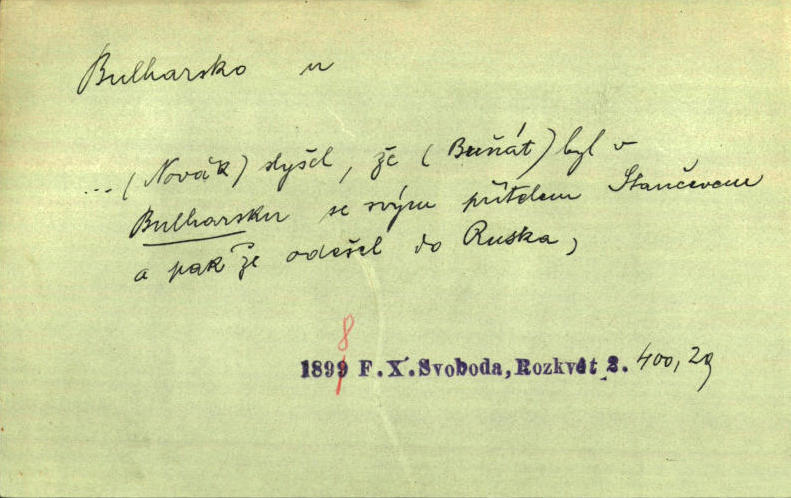 Bulharsko n
... (Novák) slyšel, že (Buňát) byl v
Bulharsku se svým přítelem Stančevem
a pak že odešel do Ruska,
8
1899 F. X. Svoboda, Rozkvět 2. 400, 29